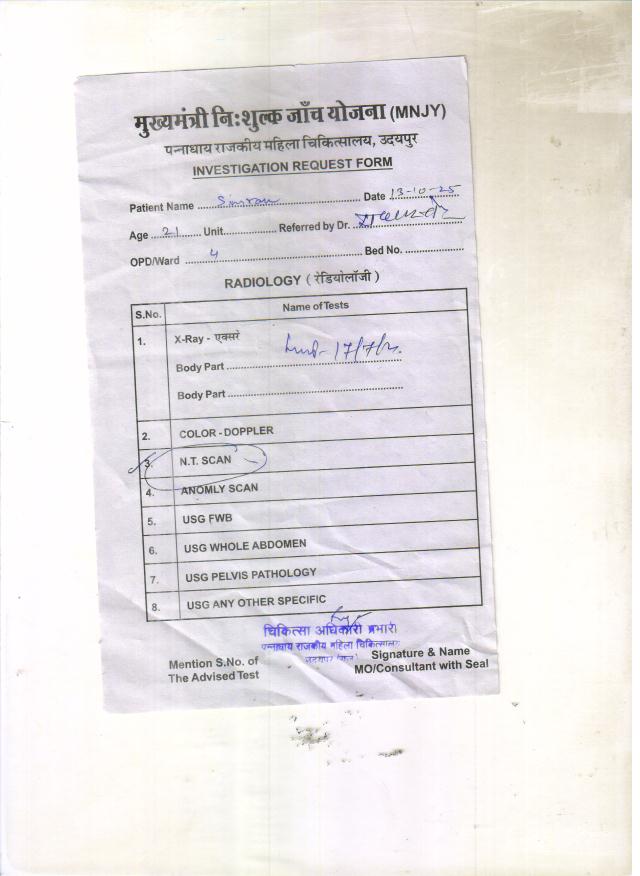 मुख्यमंत्री निःशुल्क जाँच योजना (MNJY)
पन्नाधाय राजकीय महिला चिकित्सालय, उदयपुर
INVESTIGATION REQUEST FORM
Patient Name Simran Date 13-10-25
Age 21 Unit Referred by Dr.
OPD/Ward 4 Bed No.
RADIOLOGY ( रेडियोलॉजी )
S.No. Name of Tests
1. X-Ray - एक्सरे
Body Part
Body Part
2. COLOR - DOPPLER
3. N.T. SCAN
4. ANOMLY SCAN
5. USG FWB
6. USG WHOLE ABDOMEN
7. USG PELVIS PATHOLOGY
8. USG ANY OTHER SPECIFIC
चिकित्सा अधिकारी प्रभारी
पन्नाधाय राजकीय महिला चिकित्सालय
उदयपुर (राज.)
Mention S.No. of
The Advised Test
Signature & Name
MO/Consultant with Seal